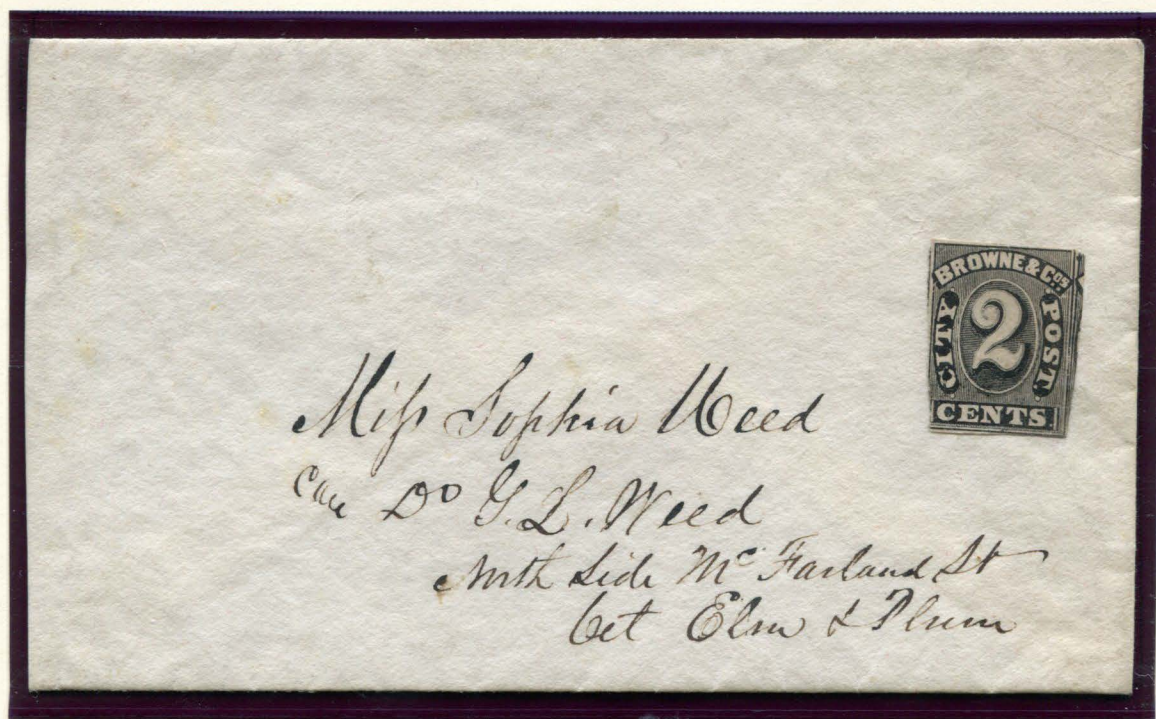 BROWNE & Cos
CITY POST.
2
CENTS
Miss Sophia Weed
care Dr G. L. Weed
North Side Mc Farland St
bet Elm & Plum